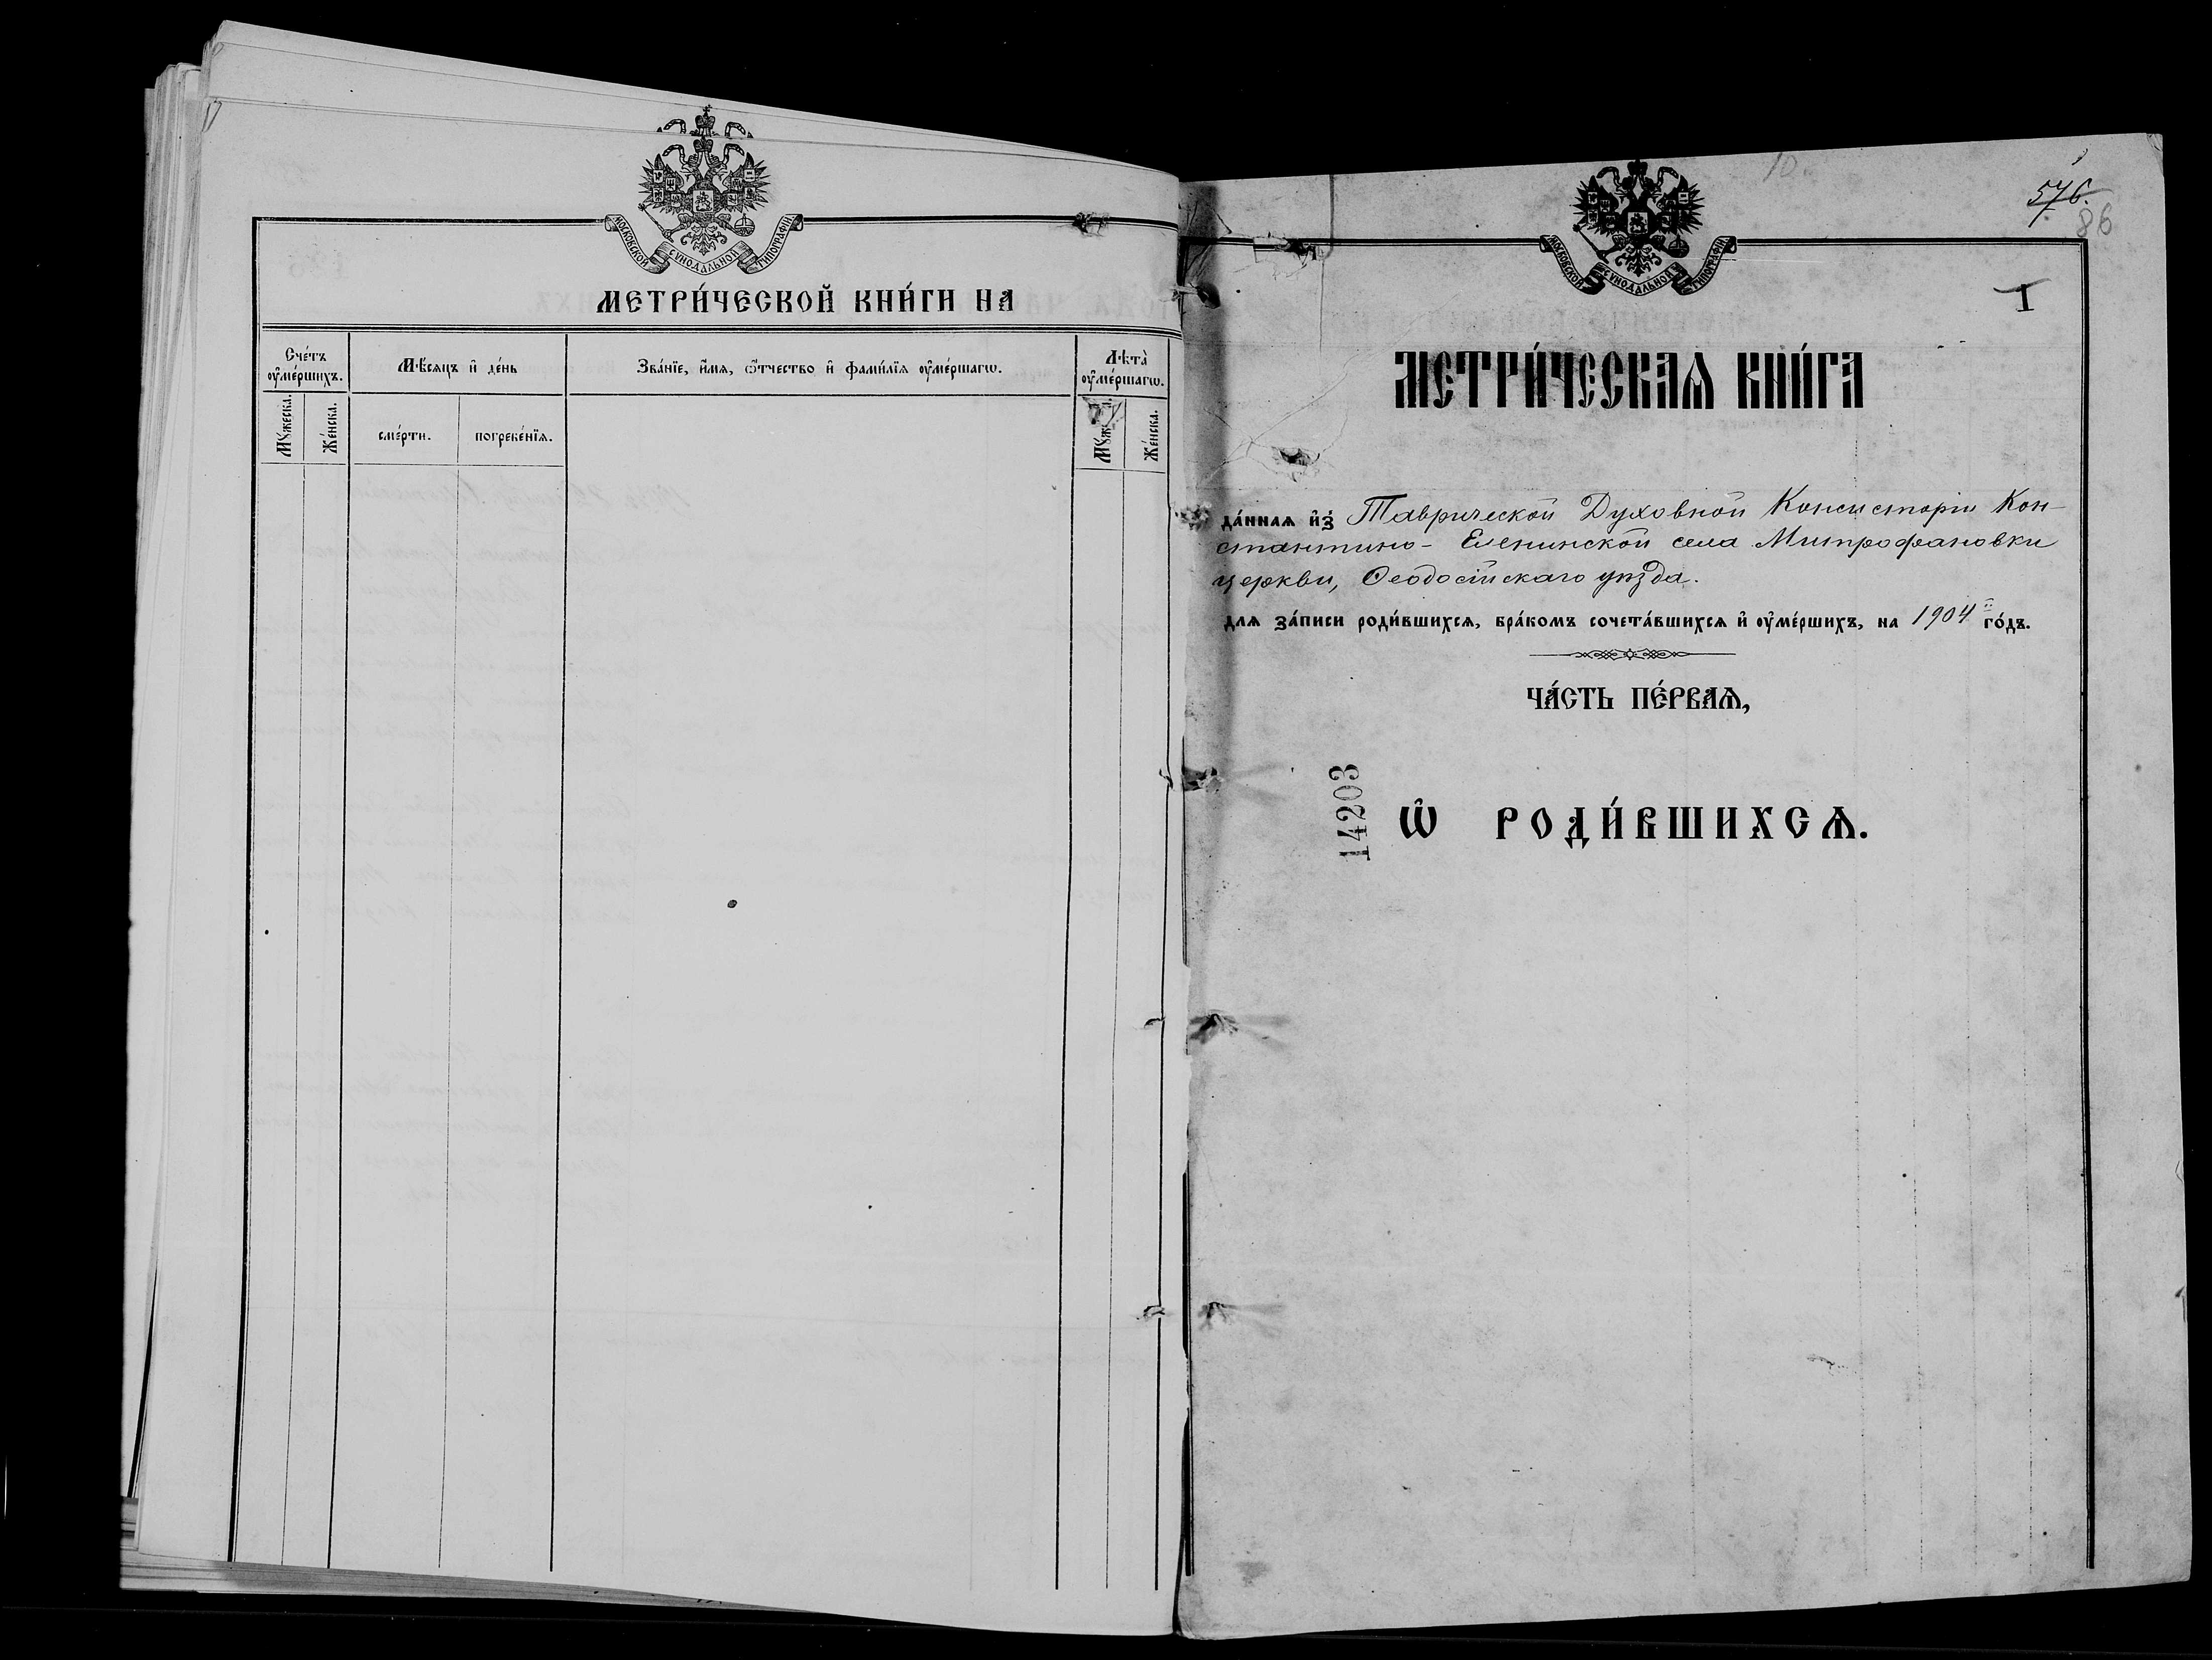 МОСКОВСКОЙ СѴНОДАЛЬНОЙ ТИПОГРАФІИ
МЕТРИ́ЧЕСКОЙ КНИ́ГИ НА
Сче́тъ ᲂу҆ме́ршихъ.
Мѣ́сяцъ и҆ де́нь
Зва́нїе, и҆́мѧ, ѻ҆́тчество и҆ фами́лїѧ ᲂу҆ме́ршагѡ.
Лѣ́та ᲂу҆ме́ршагѡ.
Мꙋ́жеска.
Же́нска.
сме́рти.
погребе́нїѧ.
Же́нска.
10
576.
86
МОСКОВСКОЙ СѴНОДАЛЬНОЙ ТИПОГРАФІИ
I
МЕТРИ́ЧЕСКАѦ КНИ́ГА
да́ннаѧ и҆з̾ Таврической Духовной Консисторіи Кон-
стантино-Еленинской села Митрофановки
церкви, Ѳеодосійскаго уѣзда.
для за́писи роди́вшихсѧ, бра́комъ сочета́вшихсѧ и҆ ᲂу҆ме́ршихъ, на 1904й го́дъ.
ЧА́СТЬ ПЕ́РВАѦ,
14203
Ѡ҆ РОДИ́ВШИХСѦ.